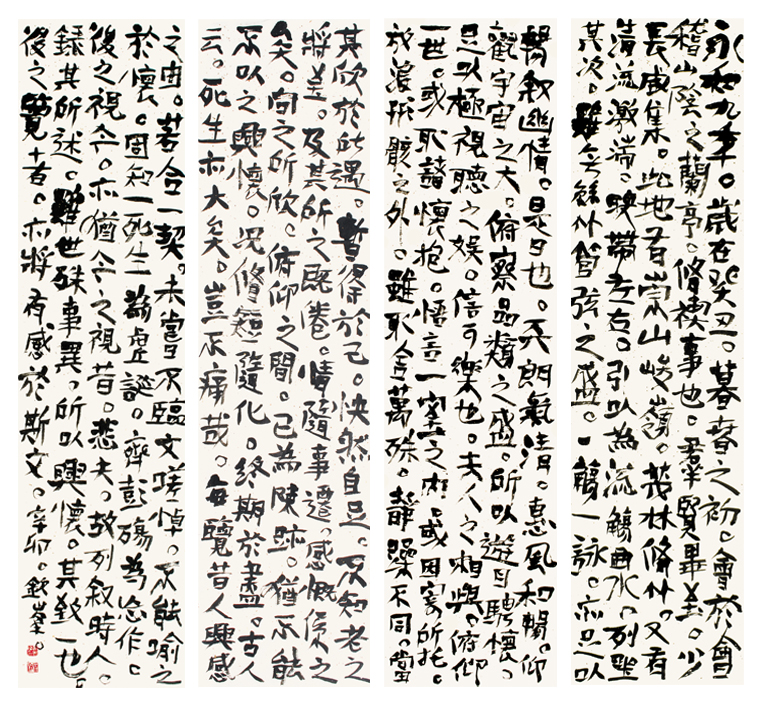 永和九年。歲在癸丑。暮春之初。會於會
稽山陰之蘭亭。脩禊事也。羣賢畢至。少
長咸集。此地有崇山峻嶺。茂林脩竹。又有
清流激湍。映帶左右。引以為流觴曲水。列坐
其次。雖無絲竹管弦之盛。一觴一詠。亦足以
暢敘幽情。是日也。天朗氣清。惠風和暢。仰
觀宇宙之大。俯察品類之盛。所以遊目騁懷。
足以極視聽之娛。信可樂也。夫人之相與。俯仰
一世。或取諸懷抱。悟言一室之內。或因寄所托。
放浪形骸之外。雖取舍萬殊。靜躁不同。當
其欣於所遇。暫得於己。快然自足。不知老之
將至。及其所之既惓。情隨事遷。感慨係之
矣。向之所欣。俯仰之間。已為陳跡。猶不能
不以之興懷。況脩短隨化。終期於盡。古人
云。死生亦大矣。豈不痛哉。每覽昔人興感
之由。若合一契。未嘗不臨文嗟悼。不能喻之
於懷。固知一死生為虛誕。齊彭殤為妄作。
後之視今。亦猶今之視昔。悲夫。故列敘時人。
錄其所述。雖世殊事異。所以興懷。其致一也。
後之覽者。亦將有感於斯文。辛卯。欽峯。